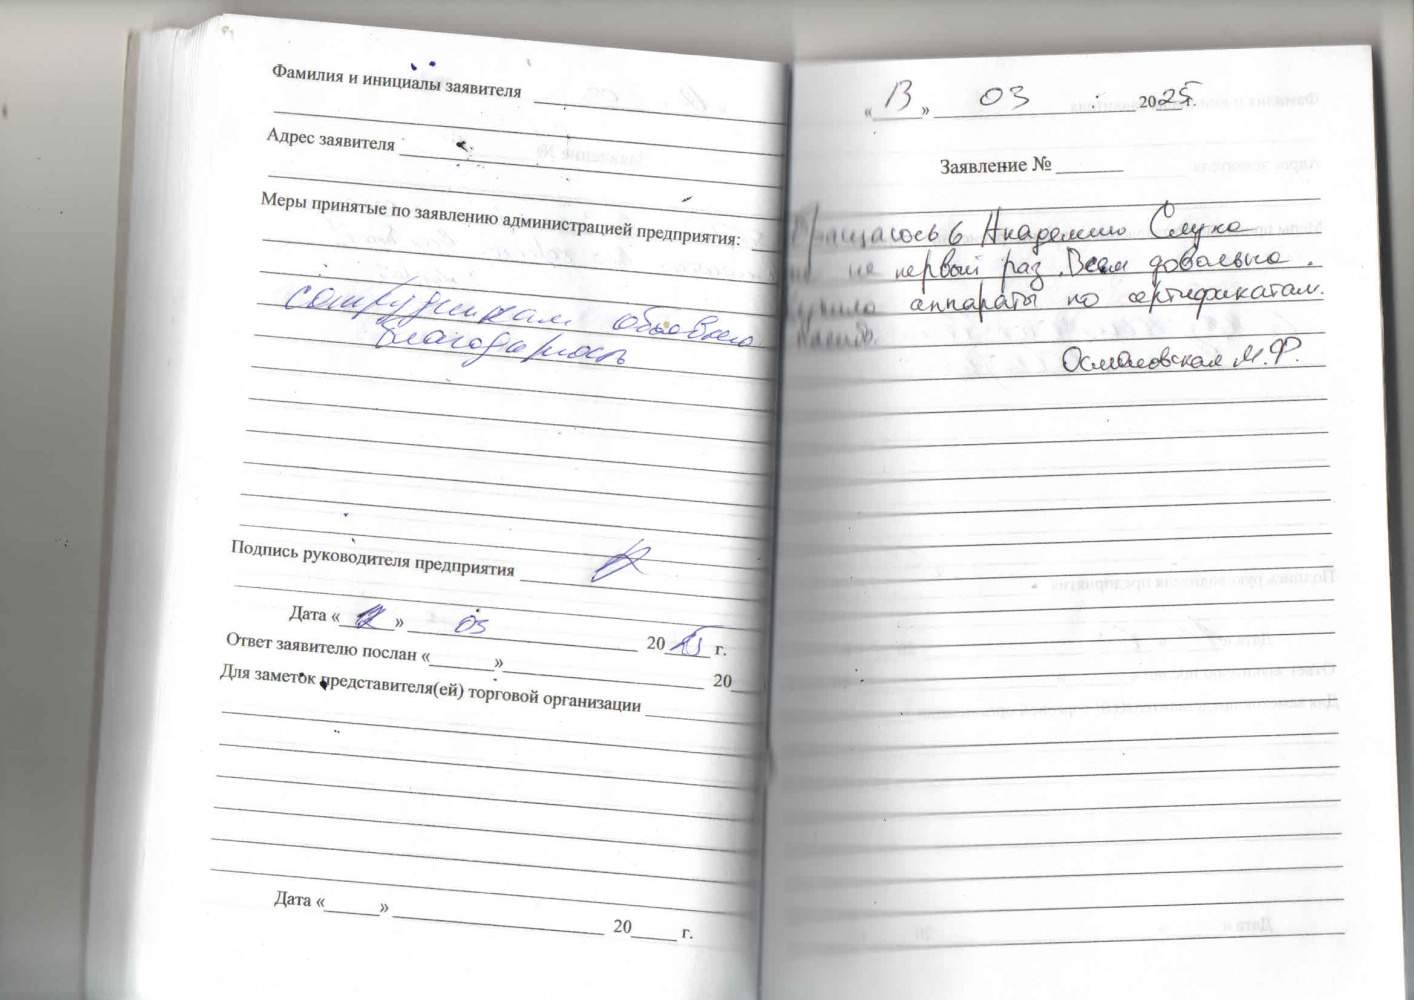 Фамилия и инициалы заявителя
Адрес заявителя
Меры принятые по заявлению администрацией предприятия:
сотрудникам объявлено
благодарность
Подпись руководителя предприятия
Дата « » 03 20 г.
Ответ заявителю послан « » 20
Для заметок представителя(ей) торговой организации
Дата « » 20 г.
«13» 03 2025
Заявление №
Обращаюсь в Академию Слуха
не первый раз. Всем довольна.
аппараты по сертификатам.
Османовская М.Ф.